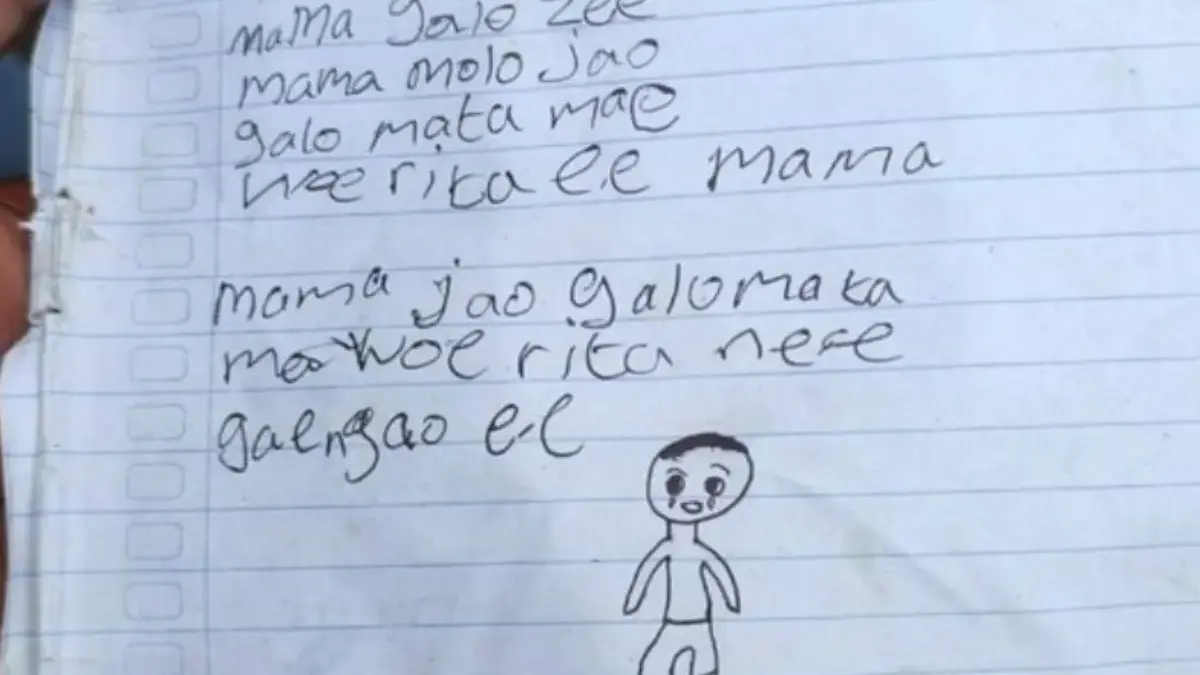 mama galo zee
mama molo jao
galo mata mae
woe rita e.e mama
mama jao galo mata
mae woe rita ne-e
gaengao e-e